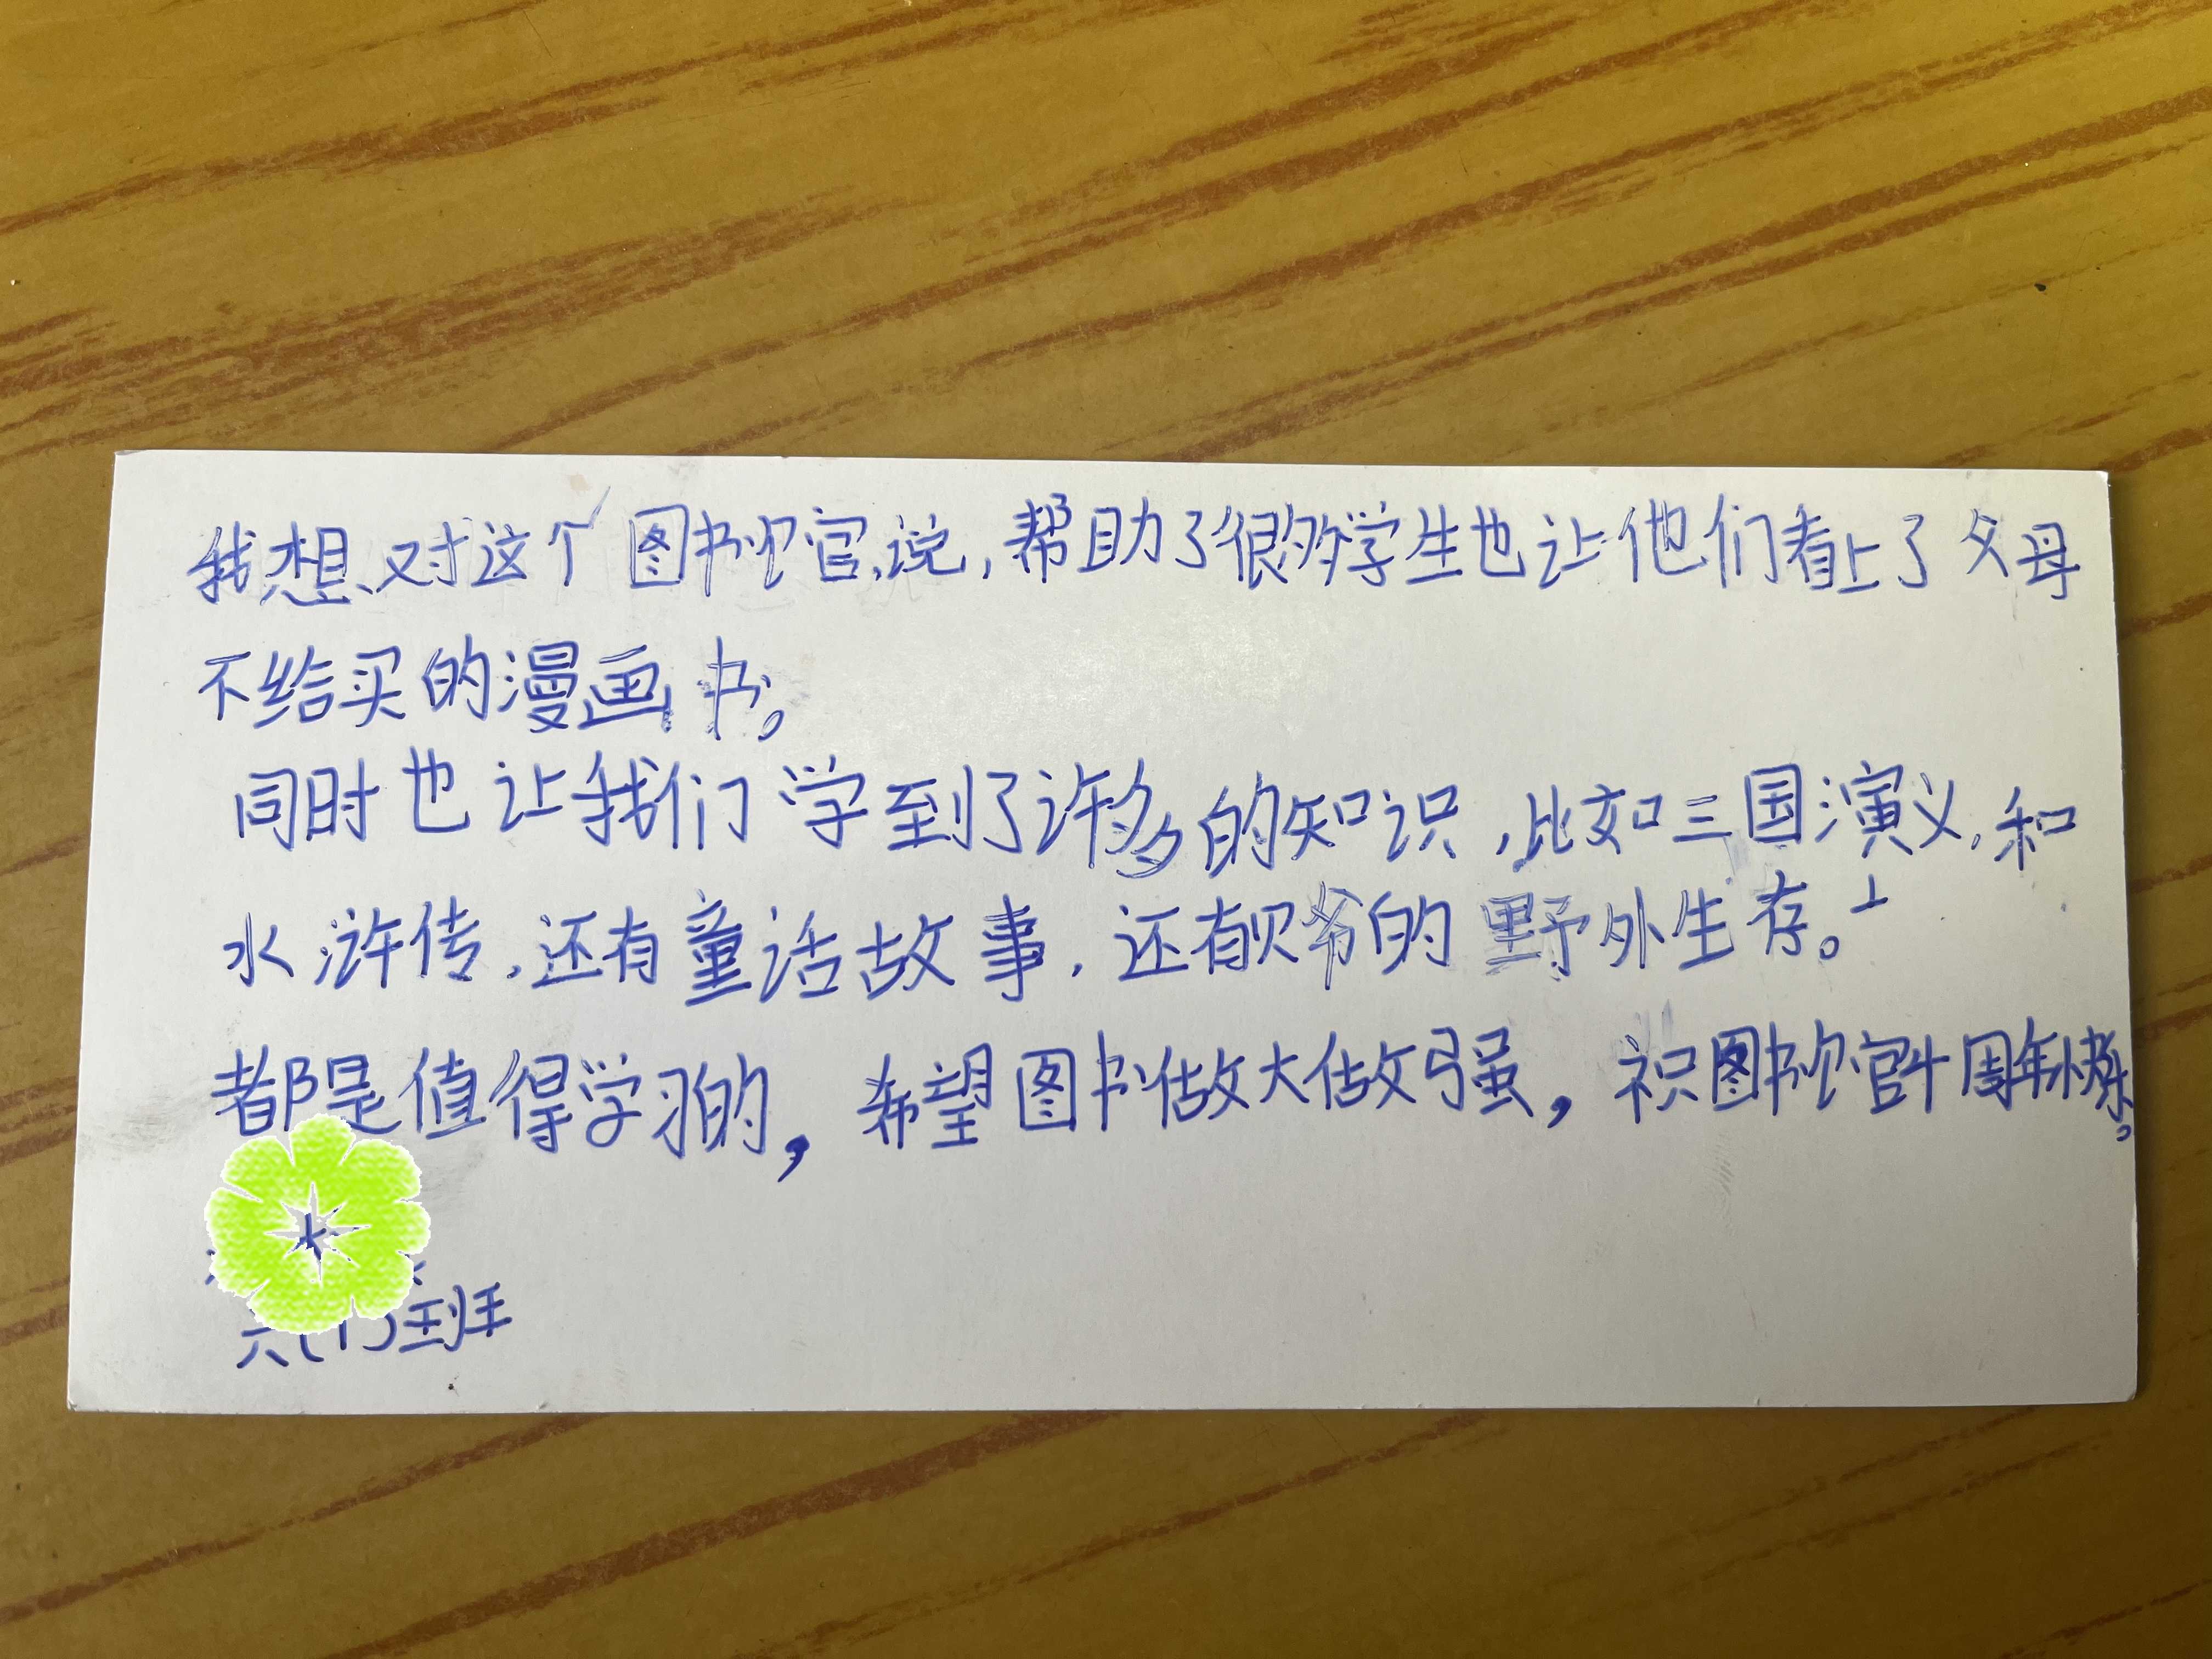 我想对这个图书馆说，帮助了很多学生也让他们看上了父母
不给买的漫画书。
同时也让我们学到了许多的知识，比如三国演义，和
水浒传，还有童话故事，还有贝爷的野外生存。
都是值得学习的，希望图书做大做强，祝图书馆十周年快乐。
六(1)班